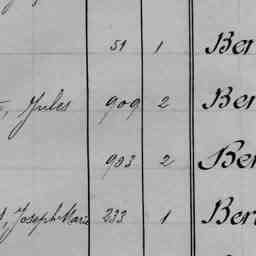 51 1 Ber
, Jules 909 2 Ber
983 2 Ber
, Joseph Marie 233 1 Ber